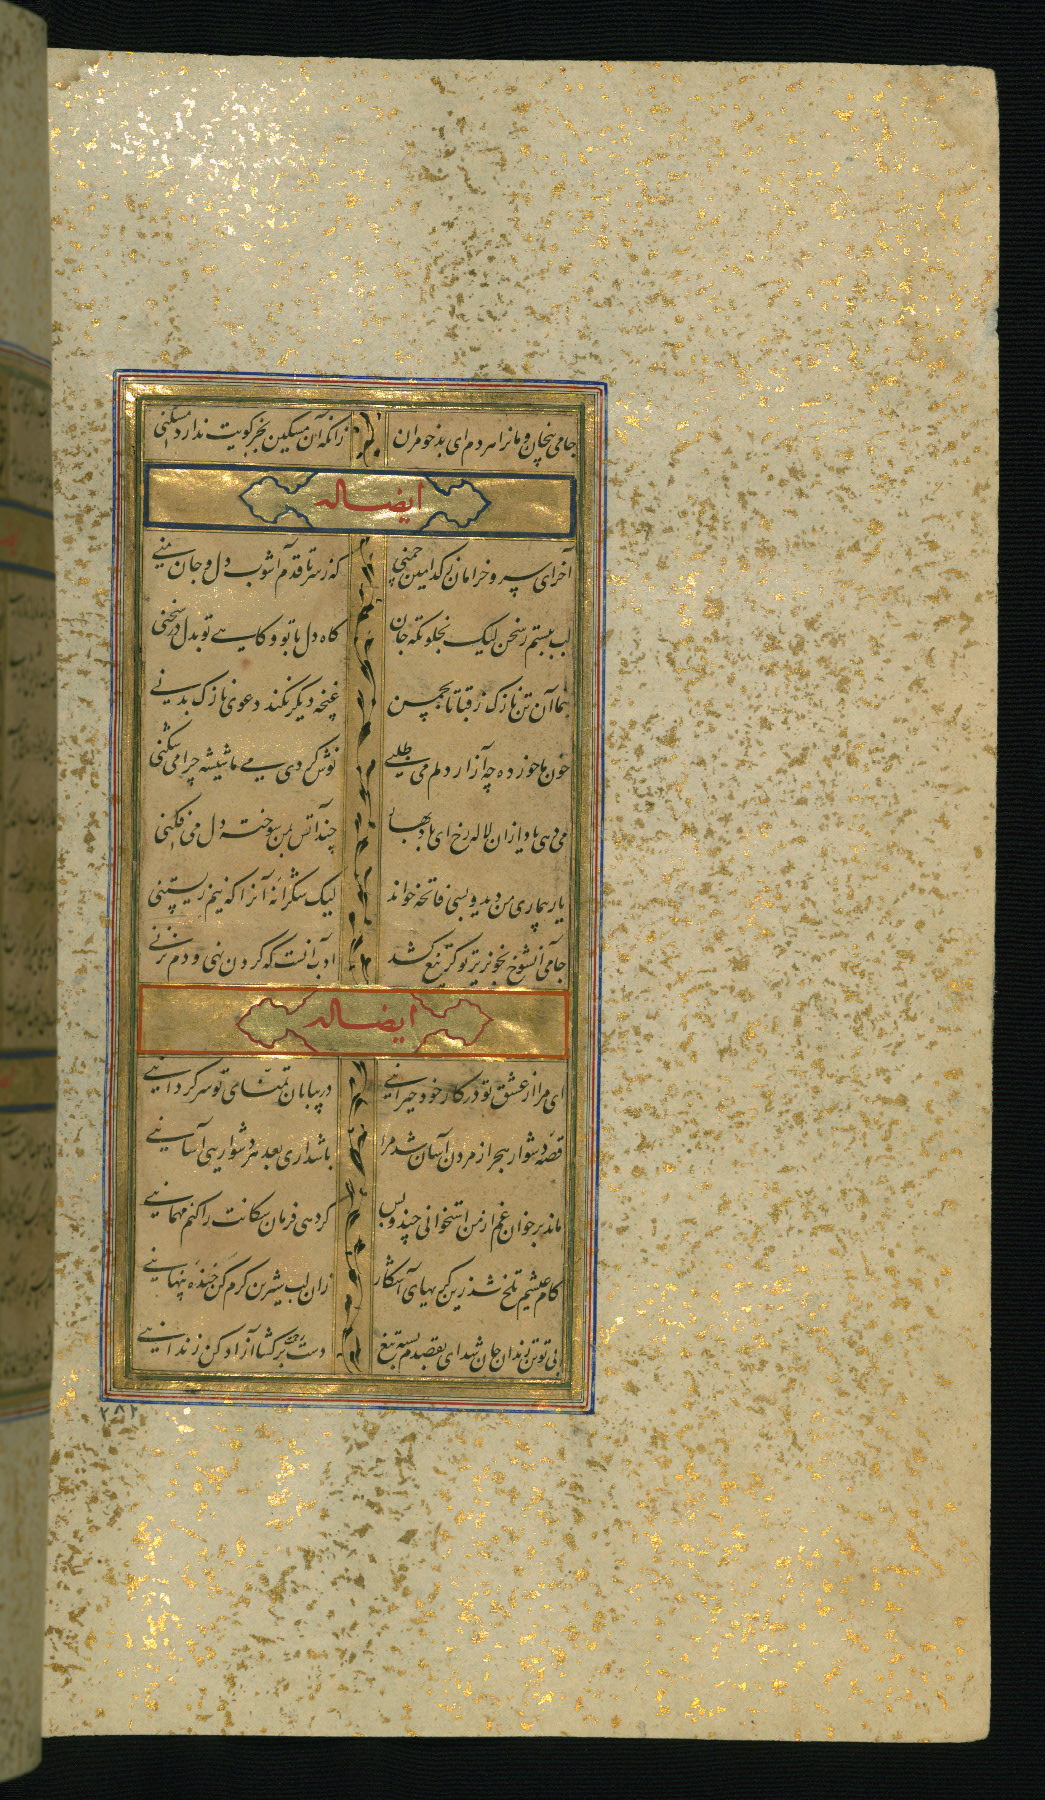 جامی بیخان و مانرا هر دم ای بدخو مران زانکه آن مسکین بجز کویت ندارد مسکنی
ایضا له
آخر ای سرو خرامان ز کدامین چمنی که ز سر تا قدم آشوب دل و جان منی
لب ببستم ز سخن لیک بخلوتکه جان کاه دل با تو و کاهی تو بدل در سخنی
بنما آن تن نازک ز قبا تا بچمن غنچه دیکر نکند دعوی نازک بدنی
خون ما خورده چه آزار دلم می طلبی نوش کردی می ما شیشه چرا می شکنی
می دهی یاد ازان لاله رخ ای باد بهار چند آتش بمن سوخته دل می فکنی
یار بیماری من دید و بسی فاتحه خواند لیک شکرانه آنرا که نیم زیستنی
جامی آنشوخ بخونریز تو کر تیغ کشد ادب آنست که کردن نهی و دم نزنی
ایضا له
ای مرا از عشق تو در کار خود حیرانیی در بیابان تمنای تو سرکردانیی
قصه دشوار هجر از مردن آسان شد مرا باشد آری بعد هر دشواریی آسانیی
ماند بر خوان غم از من استخوانی چند و بس کر دهی فرمان سکانت را کنم مهمانیی
کام عیشم تلخ شد زین کریهای آشکار زان لب شیرین کرم کن خنده پنهانیی
بی تو تن زندان جان شد ای بقصدم بسته تیغ دست رحمت برکشا آزاد کن زندانیی
۲۸۲